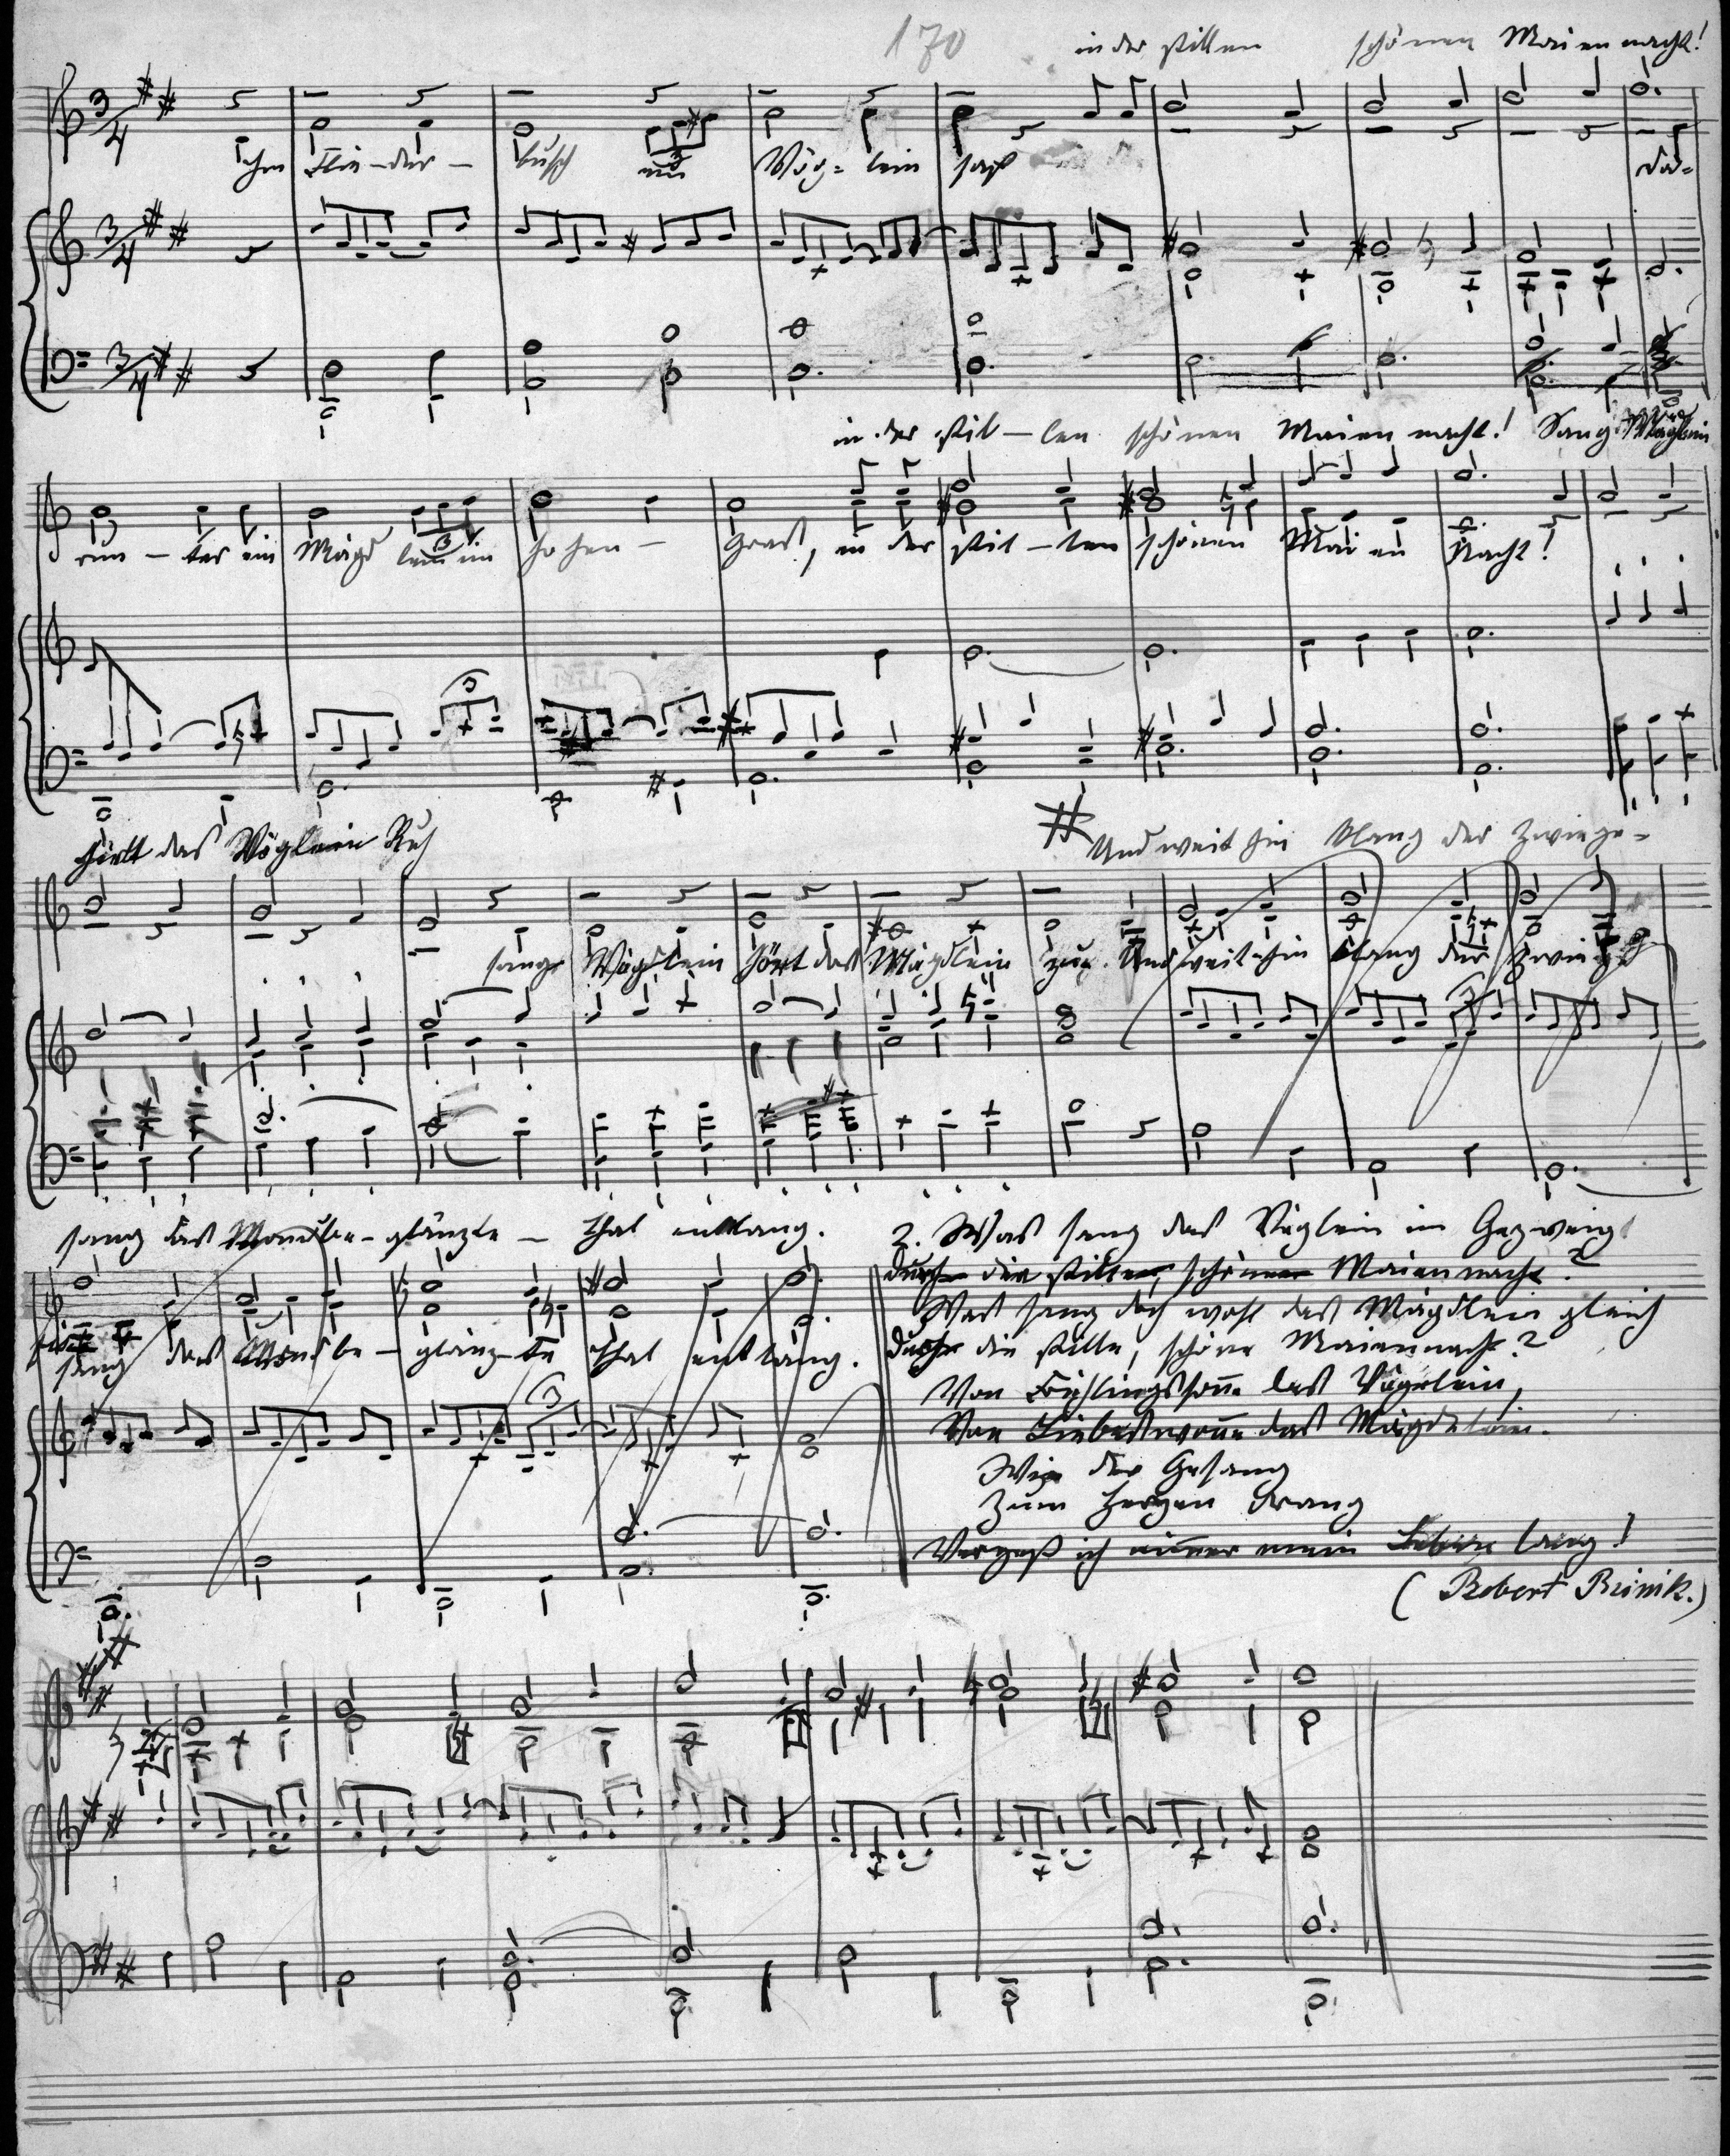 170
in der stillen schönen Maien nacht!
Im Flie-der- busch ein Vög-lein saß
da-
in der stil-len schönen Maien nacht! Sang Mägdlein
run-ter ein Mägd lein im hohen- Gras, in der stil-len schönen Mai en Nacht!
hielt das Vöglein Ruh
Und weit hin klang der Zwiege-
sang Vöglein hört das Mägdlein zu. Und weit-hin klang der Zwiege
sang das Mondbe-glänzte - Thal entlang.
sang das Mondbe-glänz-te Thal entlang.
2. Was sang das Vöglein im Gezweig
durch die stille, schöne Maiennacht?
Was sang doch wohl das Mägdlein gleich
durch die stille, schöne Maiennacht?
Von Frühlingssonne das Vögelein,
Von Liebeswonne das Mägdelein.
Wie der Gesang
Zum Herzen drang
Vergeß ich nimmer mein Leben lang!
(Robert Reinik.)